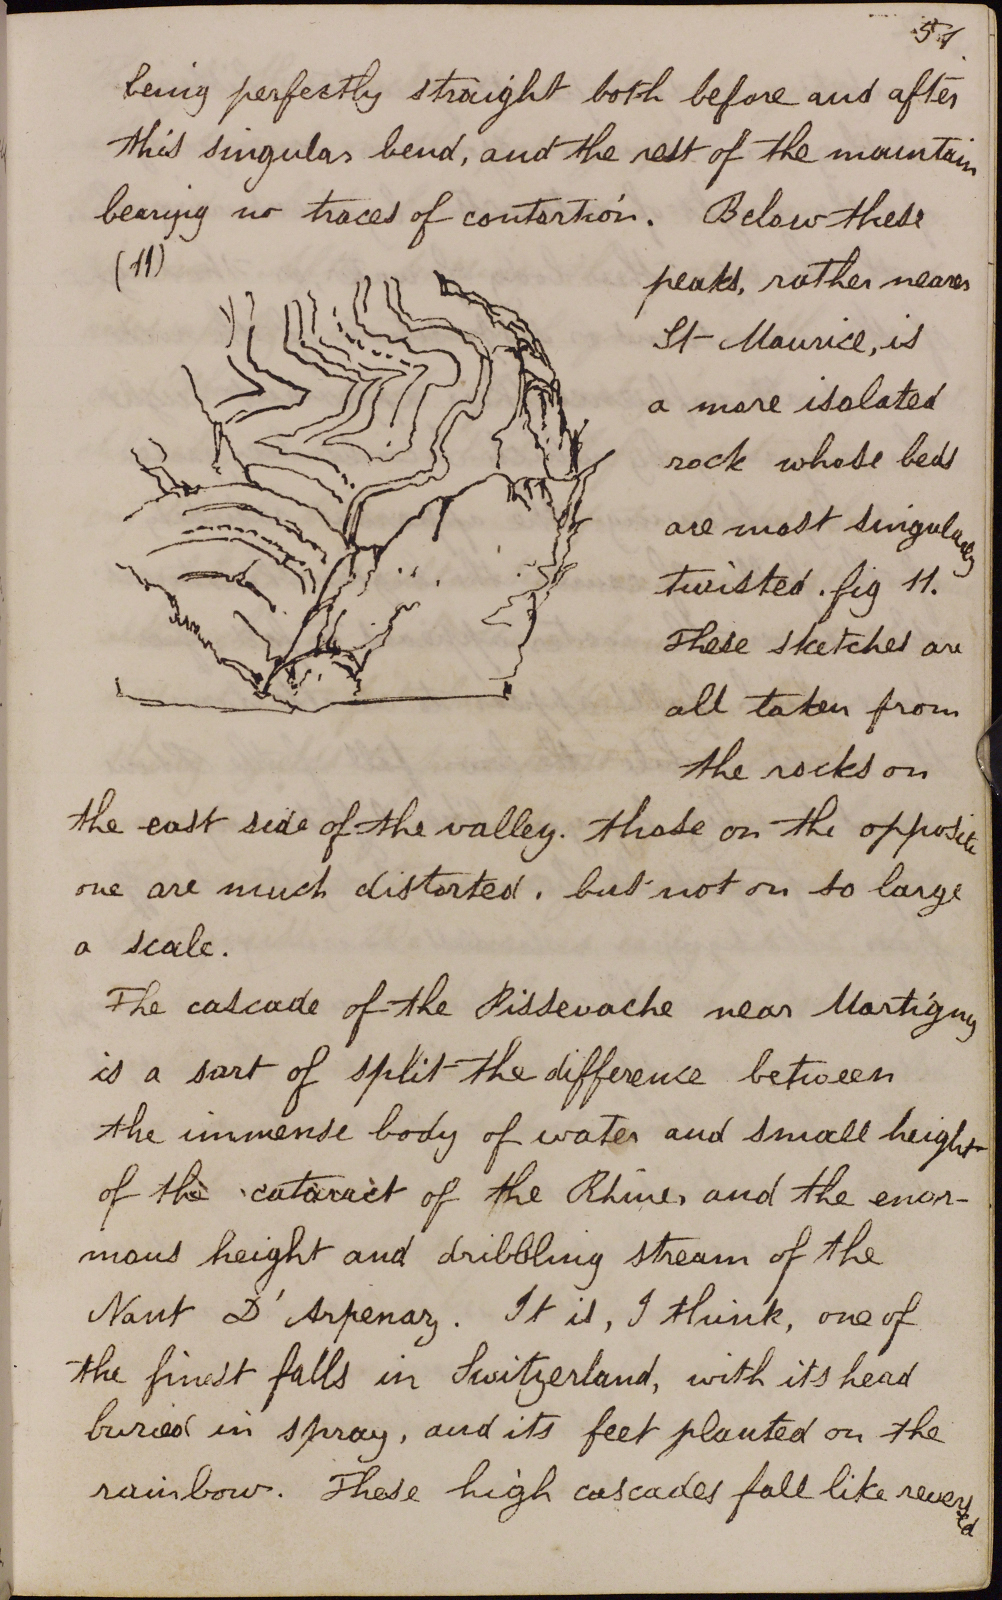 57
being perfectly straight both before and after
this singular bend, and the rest of the mountain
bearing no traces of contortion. Below these
(11)
peaks, rather nearer
St Maurice, is
a more isolated
rock whose beds
are most singularly
twisted. fig 11.
These sketches are
all taken from
the rocks on
the east side of the valley. those on the opposite
one are much distorted, but not on so large
a scale.
The cascade of the Pissevache near Martigny
is a sort of split the difference between
the immense body of water and small height
of the cataract of the Rhine, and the enor-
mous height and dribbling stream of the
Nant D'Arpenaz. It is, I think, one of
the finest falls in Switzerland, with its head
buried in spray, and its feet planted on the
rainbow. These high cascades fall like reversed